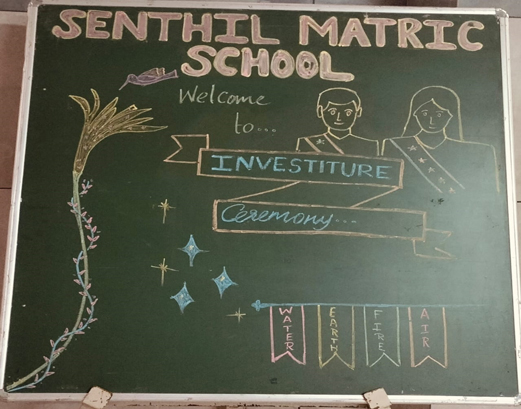 SENTHIL MATRIC
SCHOOL
Welcome
to...
INVESTITURE
Ceremony...
WATER
EARTH
FIRE
AIR